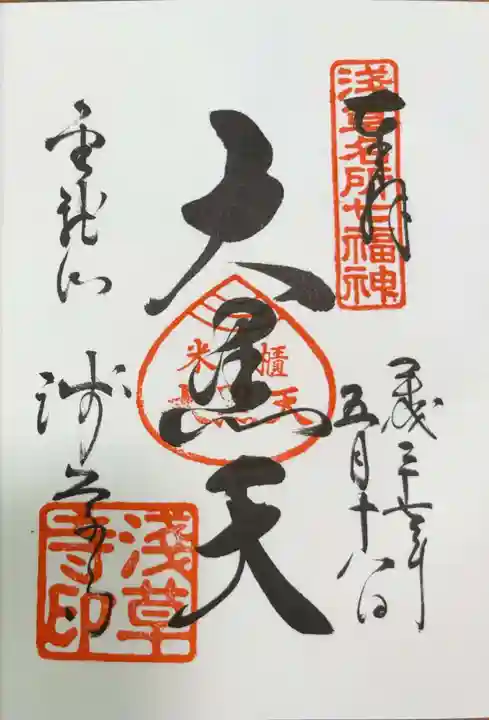 浅草名所七福神
奉拝
平成三十年
五月十八日
大黒天
米櫃
大黒天
金龍山
浅草寺
浅草
寺印